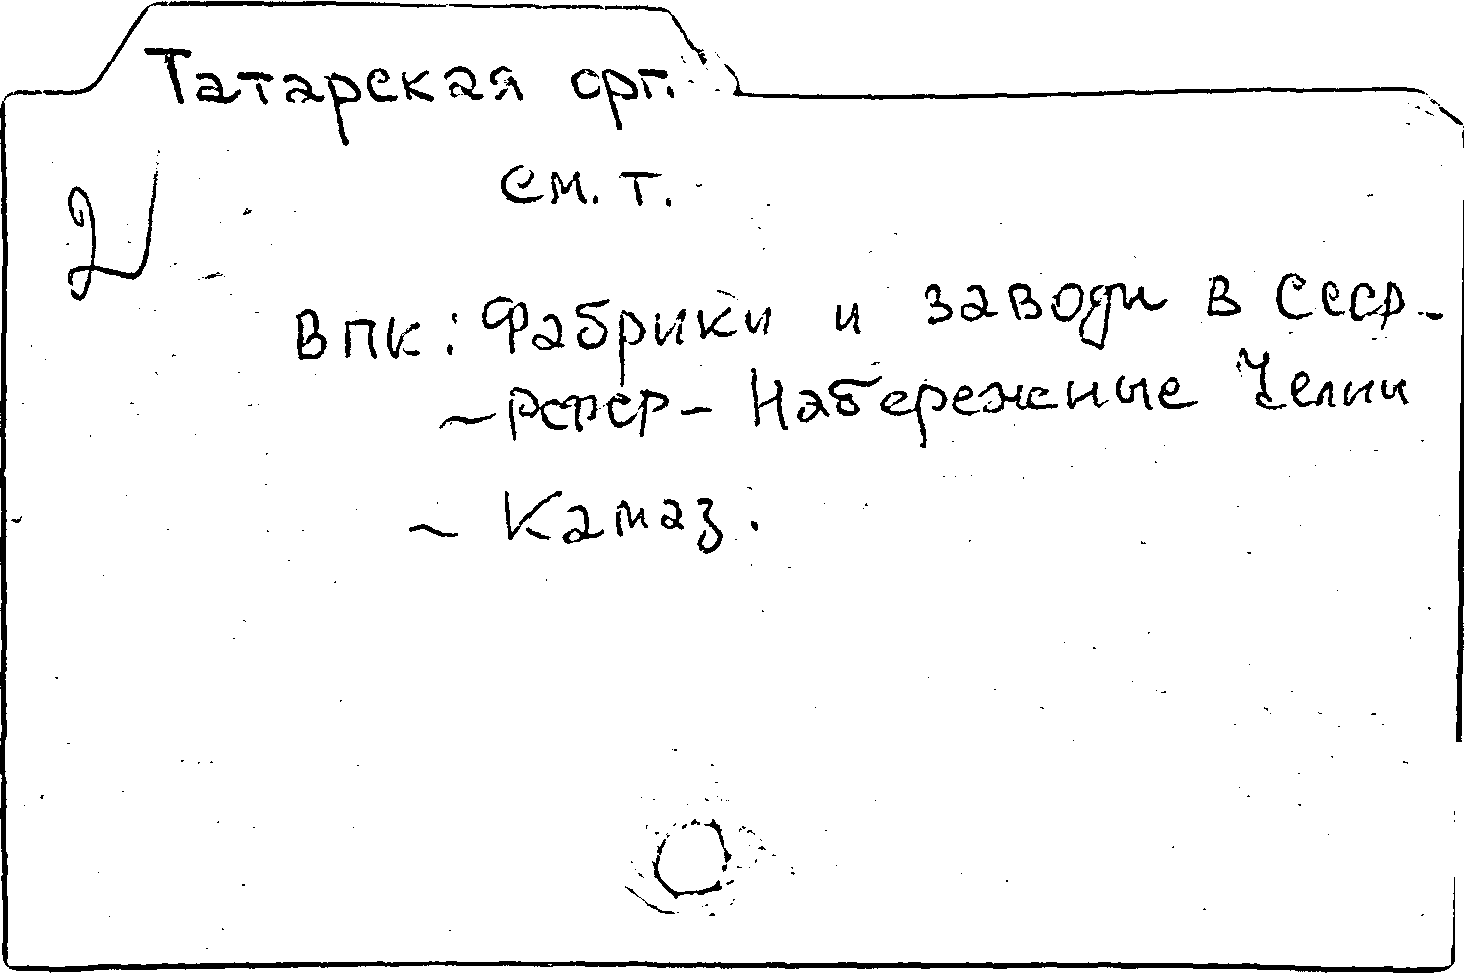 Татарская орг.
см. т.
2
ВПК: Фабрики и заводи в СССР-
~ РСФСР - Набережные Челни
~ Камаз.